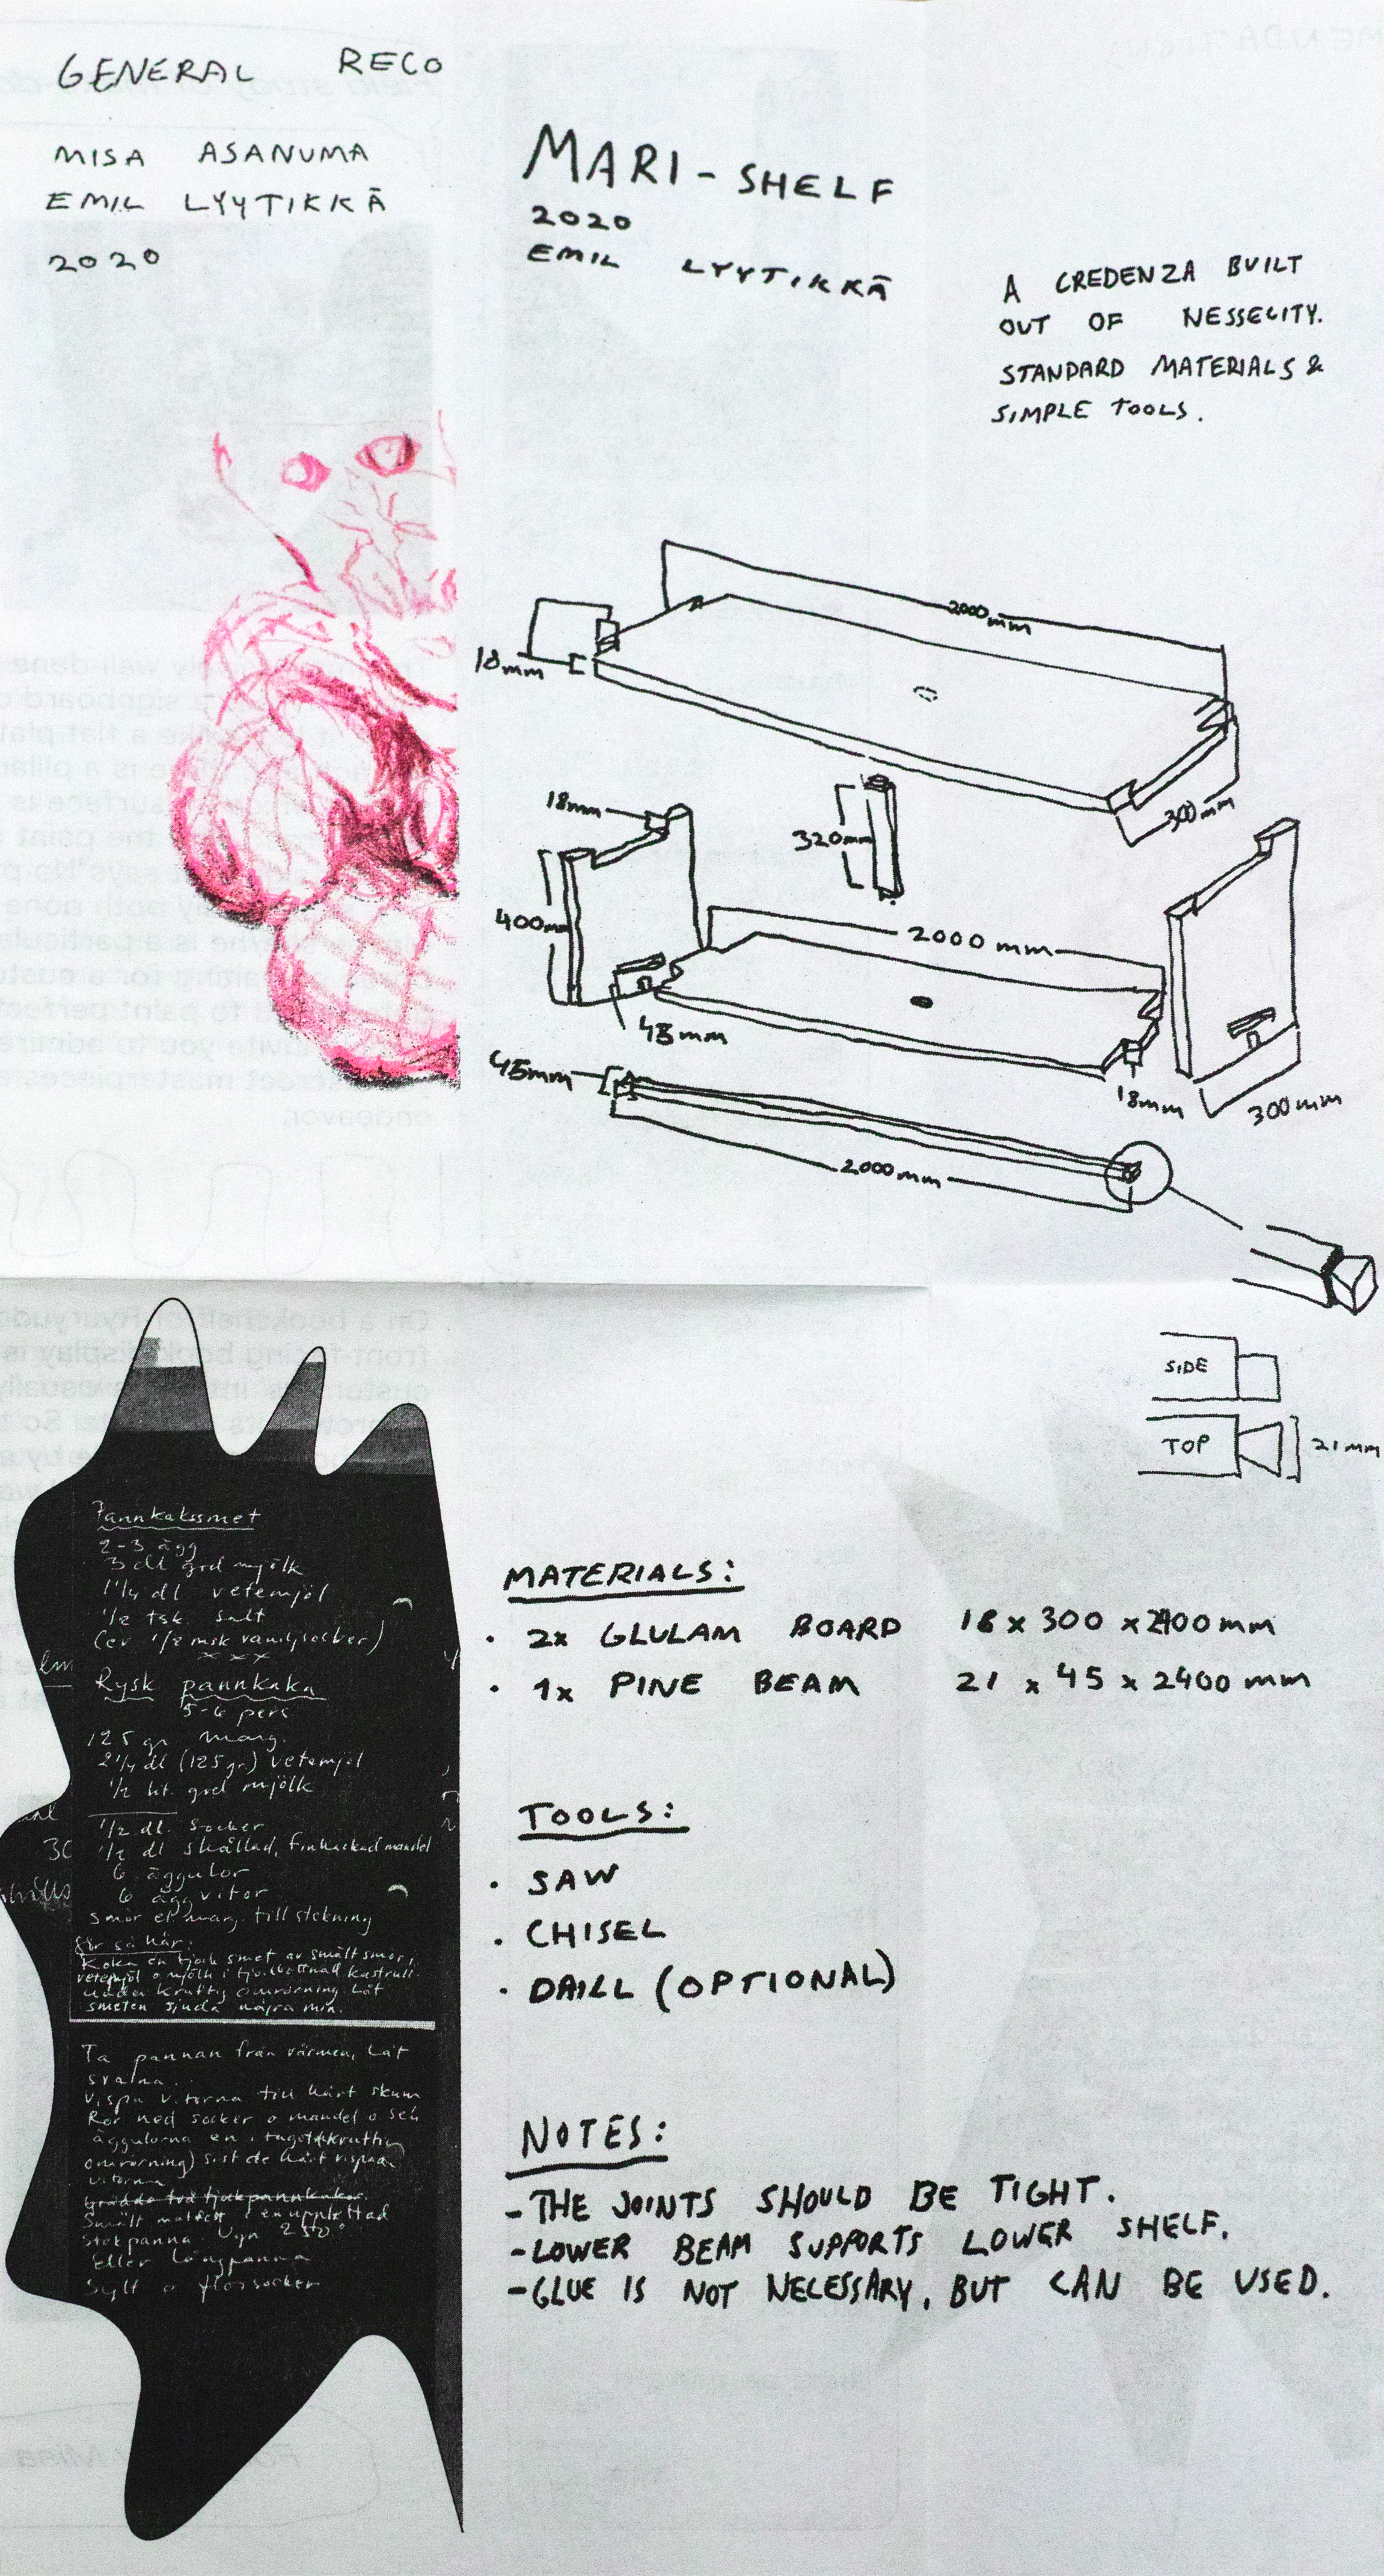 GENERAL RECO
MISA ASANUMA
EMIL LYYTIKKÄ
2020
MARI-SHELF
2020
EMIL LYYTIKKÄ
A CREDENZA BUILT
OUT OF NESSECITY.
STANDARD MATERIALS &
SIMPLE TOOLS.
2000mm
18mm
300mm
18mm
320mm
400mm
2000 mm
48mm
45mm
18mm
300mm
2000mm
SIDE
TOP
21mm
MATERIALS:
• 2x GLULAM BOARD 18 x 300 x 2400mm
• 1x PINE BEAM 21 x 45 x 2400 mm
TOOLS:
• SAW
• CHISEL
• DRILL (OPTIONAL)
NOTES:
-THE JOINTS SHOULD BE TIGHT.
-LOWER BEAM SUPPORTS LOWER SHELF.
-GLUE IS NOT NECESSARY, BUT CAN BE USED.
Pannkakssmet
2-3 ägg
3 dl grd mjölk
1 1/4 dl vetemjöl
1/2 tsk salt
(ev 1/2 msk vaniljsocker)
xxx
Rysk pannkaka
5-6 pers.
125 gr marg.
2 1/4 dl (125 gr.) vetemjöl
1/2 lit. grd mjölk
1/2 dl. socker
1/2 dl skållad, finhackad mandel
6 äggulor
6 äggvitor
smör el. marg. till stekning
Gör så här:
Koka en tjock smet av smält smör,
vetemjöl o mjölk i tjockbottnad kastrull
under kraftig omrörning. Låt
smeten sjuda några min.
Ta pannan från värmen, Låt
svalna.
Vispa vitorna till hårt skum
Rör ned socker o mandel o sen
äggulorna en i taget (kraftig
omrörning) sist de hårt vispade
vitorna
Grädda två tjockpannkakor
Smält matfett i en upphettad
stekpanna. Ugn 250°
Eller långpanna
Sylt o florsocker